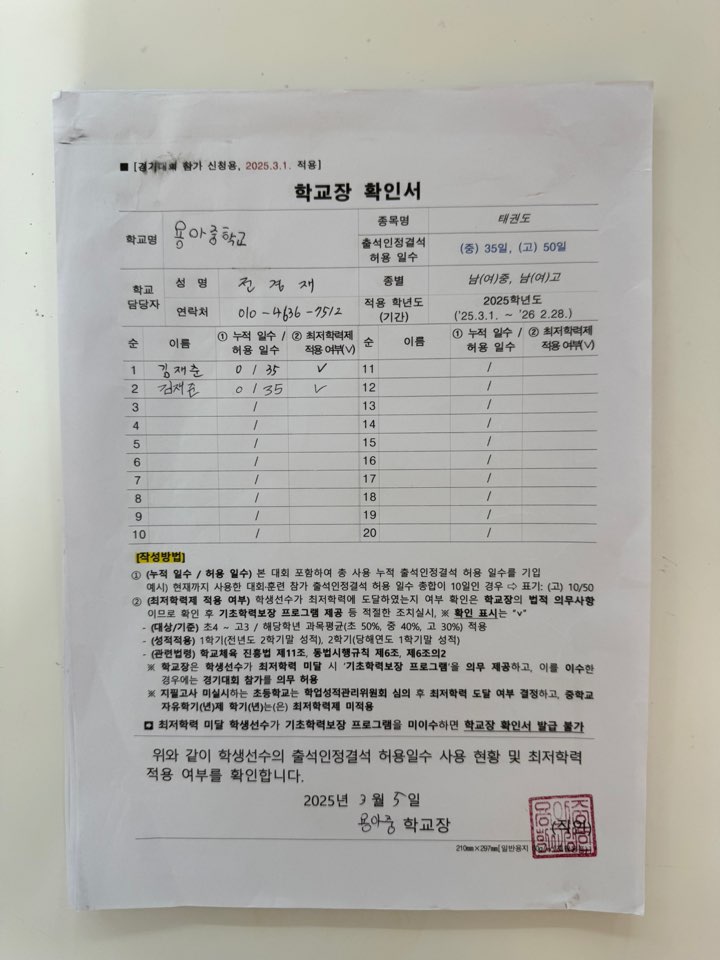 ■ [경기대회 참가 신청용, 2025.3.1. 적용]
학교장 확인서
학교명 용아중학교 종목명 태권도
출석인정결석 허용 일수 (중) 35일, (고) 50일
학교 담당자 성 명 전경재 종별 남(여)중, 남(여)고
연락처 010-4636-7512 적용 학년도 (기간) 2025학년도 ('25.3.1. ~ '26 2.28.)
순 이름 ① 누적 일수 / 허용 일수 ② 최저학력제 적용 여부(∨) 순 이름 ① 누적 일수 / 허용 일수 ② 최저학력제 적용 여부(∨)
1 김재준 0 / 35 ∨ 11 /
2 김재준 0 / 35 ∨ 12 /
3 / 13 /
4 / 14 /
5 / 15 /
6 / 16 /
7 / 17 /
8 / 18 /
9 / 19 /
10 / 20 /
[작성방법]
① (누적 일수 / 허용 일수) 본 대회 포함하여 총 사용 누적 출석인정결석 허용 일수를 기입
예시) 현재까지 사용한 대회·훈련 참가 출석인정결석 허용 일수 총합이 10일인 경우 ⇨ 표기: (고) 10/50
② (최저학력제 적용 여부) 학생선수가 최저학력에 도달하였는지 여부 확인은 학교장의 법적 의무사항
이므로 확인 후 기초학력보장 프로그램 제공 등 적절한 조치실시, ※ 확인 표시는 "v"
- (대상/기준) 초4 ~ 고3 / 해당학년 과목평균(초 50%, 중 40%, 고 30%) 적용
- (성적적용) 1학기(전년도 2학기말 성적), 2학기(당해연도 1학기말 성적)
- (관련법령) 학교체육 진흥법 제11조, 동법시행규칙 제6조, 제6조의2
※ 학교장은 학생선수가 최저학력 미달 시 '기초학력보장 프로그램'을 의무 제공하고, 이를 이수한
경우에는 경기대회 참가를 의무 허용
※ 지필고사 미실시하는 초등학교는 학업성적관리위원회 심의 후 최저학력 도달 여부 결정하고, 중학교
자유학기(년)제 학기(년)는(은) 최저학력제 미적용
최저학력 미달 학생선수가 기초학력보장 프로그램을 미이수하면 학교장 확인서 발급 불가
위와 같이 학생선수의 출석인정결석 허용일수 사용 현황 및 최저학력
적용 여부를 확인합니다.
2025년 3월 5일
용아중 학교장 (직인)
210㎜×297㎜[일반용지